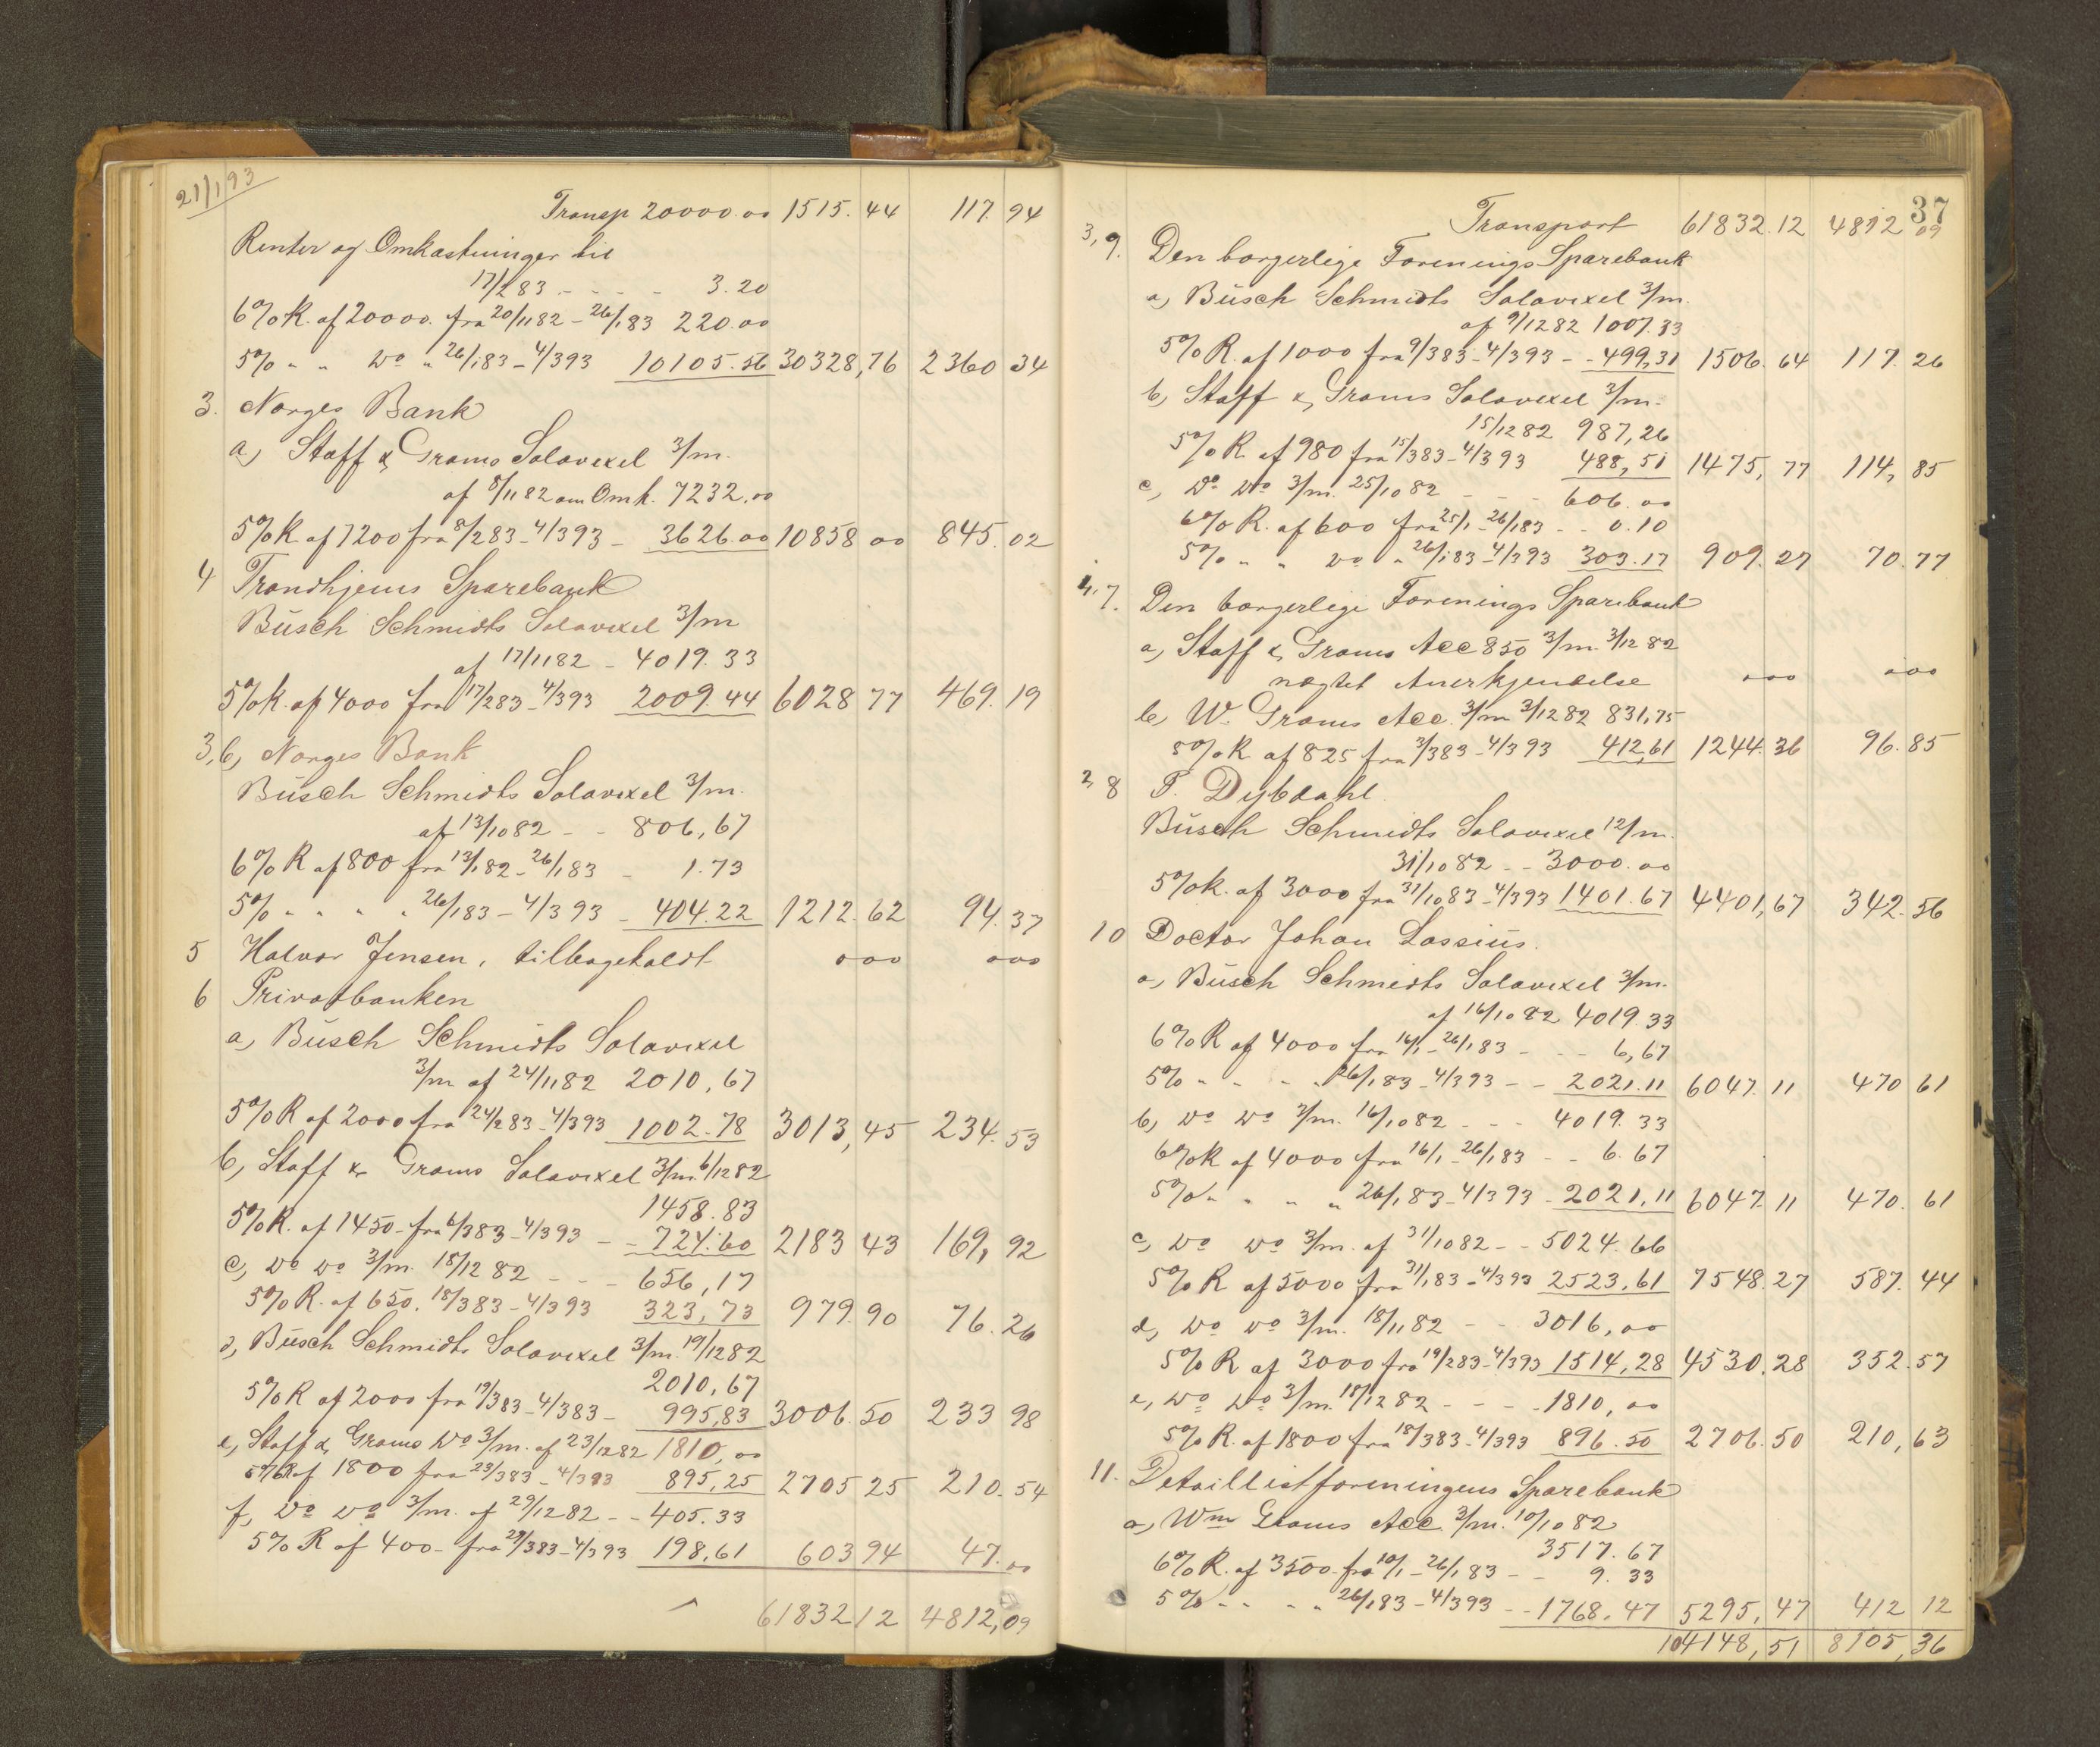 21/1 93
Transp 20000.00 1515.44 117.94
Renter og Omkostninger til
17/2 83 - - - - 3.20
6% R. af 20000. fra 20/11 82 - 26/1 83 220.00
5% " " Do " 26/1 83 - 4/3 93 10105.56 30328,76 2360 34
3. Norges Bank
a, Staff & Grams Solavexel 3/m.
af 8/11 82 om Omk. 7232.00
5% R af 7200 fra 8/2 83 - 4/3 93 - 3626.00 10858 00 845.02
4 Trondhjems Sparebank
Büsch Schmidts Solavexel 3/m
af 17/11 82 - 4019.33
5% R. af 4000 fra 17/2 83 - 4/3 93 2009.44 6028 77 469.19
3,b, Norges Bank
Büsch Schmidts Solavexel 3/m.
af 13/10 82 - - 806,67
6% R af 800 fra 13/1 82 - 26/1 83 - 1.73
5% " " " " 26/1 83 - 4/3 93 - 404.22 1212.62 94.37
5 Halvor Jensen, tilbageholdt 000 000
6 Privatbanken
a, Büsch Schmidts Solavexel
3/m af 24/11 82 2010,67
5% R af 2000 fra 24/2 83 - 4/3 93 1002.78 3013,45 234.53
b, Staff & Grams Solavexel 3/m. 6/12 82
1458.83
5% R. af 1450 - fra 6/3 83 - 4/3 93 - - 724.60 2183 43 169,92
c, Do Do 3/m. 18/12 82 - - - 656,17
5% R. af 650. 18/3 83 - 4/3 93 323,73 979.90 76.26
d, Büsch Schmidts Solavexel 3/m. 19/12 82
2010,67
5% R af 2000 fra 19/3 83 - 4/3 83 - 995,83 3006.50 233 98
e, Staff & Grams Do 3/m. af 23/12 82 1810,00
5% R af 1800 fra 23/3 83 - 4/3 93 895,25 2705 25 210.54
f, Do Do 3/m. af 29/12 82 - - 405.33
5% R af 400 - fra 29/3 83 - 4/3 93 198,61 603 94 47.00
61832 12 4812,09
37
Transport 61832.12 4812 09
3,9. Den borgerlige Forenings Sparebank
a, Büsch Schmidts Solavexel 3/m.
af 9/12 82 1007.33
5% R. af 1000 fra 9/3 83 - 4/3 93 - - 499,31 1506.64 117.26
b, Staff & Grams Solavexel 3/m.
15/12 82 987,26
5% R. af 980 fra 15/3 83 - 4/3 93 488,51 1475,77 114,85
c, Do Do 3/m. 25/10 82 - - - 606.00
6% R. af 600 fra 25/1 - 26/1 83 - - 0.10
5% " " Do " 26/1 83 - 4/3 93 303.17 909.27 70.77
4,7. Den borgerlige Forenings Sparebank
a, Staff & Grams Acc 850 3/m. 3/12 82
nægtet Anerkjendelse 000 000
b, W. Grams Acc. 3/m 3/12 82 831,75
5% R af 825 fra 3/3 83 - 4/3 93 412,61 1244.36 96.85
2,8 P. Dybdahl
Büsch Schmidts Solavexel 12/m.
31/10 82 - - 3000.00
5% R. af 3000 fra 31/10 83 - 4/3 93 1401.67 4401,67 342.56
10 Doctor Johan Lossius.
a, Büsch Schmidts Solavexel 3/m.
af 16/10 82 4019.33
6% R af 4000 fra 16/1 - 26/1 83 - - - 6,67
5% " " " " 26/1 83 - 4/3 93 - - 2021.11 6047.11 470 61
b, Do Do 3/m. 16/10 82 - - - 4019.33
6% R af 4000 fra 16/1 - 26/1 83 - - 6.67
5% " " " " 26/1 83 - 4/3 93 - 2021,11 6047.11 470.61
c, Do Do 3/m. af 31/10 82 - - 5024.66
5% R af 5000 fra 31/1 83 - 4/3 93 2523,61 7548.27 587.44
d, Do Do 3/m. 18/11 82 - - 3016,00
5% R af 3000 fra 19/2 83 - 4/3 93 1514,28 4530.28 352.57
e, Do Do 3/m. 18/12 82 - - - - 1810,00
5% R. af 1800 fra 18/3 83 - 4/3 93 896.50 2706.50 210,63
11. Detaillistforeningens Sparebank
a, Wm Grams Acc 3/m. 10/10 82
3517.67
6% R. af 3500 - fra 10/1 - 26/1 83 - - 9.33
5% " " " " 26/1 83 - 4/3 93 - - 1768.47 5295,47 412 12
104148,51 8105,36